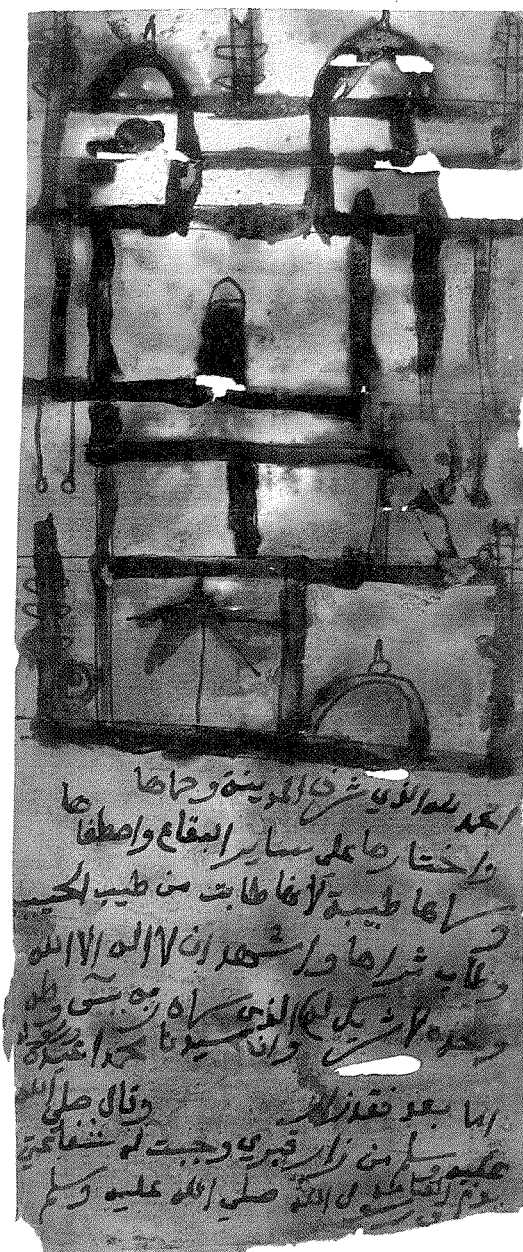 الحمد لله الذي شرف المدينة وحماها
واختارها على ساير البقاع واصطفاها
وسماها طيبة لأنها طابت من طيب الحبيب
وطاب ثراها واشهد ان لا اله الا الله
وحده لا شريك له الذي سماه يس وطه
وان سيدنا محمدا عبده ورسوله
اما بعد فقد زار وقال صلى الله
عليه وسلم من زار قبري وجبت له شفاعتي
يوم القيامة صلى الله عليه وسلم